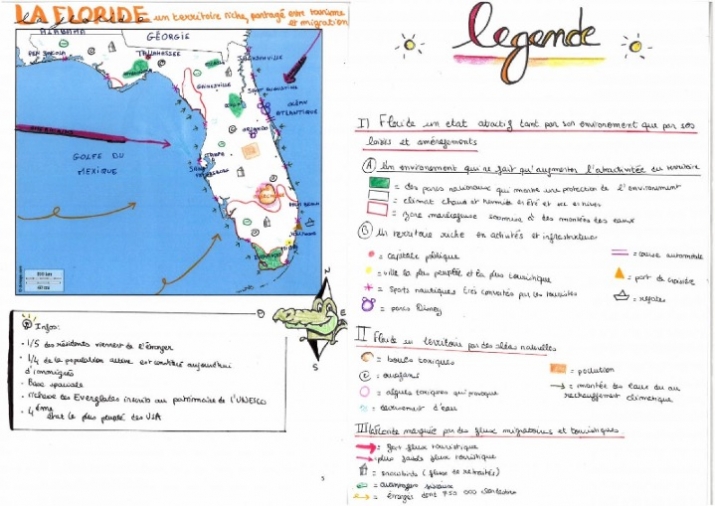 LA FLORIDE un territoire riche, partagé entre tourisme
et migration
ALABAMA
GÉORGIE
TALLAHASSEE
JACKSONVILLE
GAINESVILLE
OCÉAN
ATLANTIQUE
ORLANDO
TAMPA
GOLFE DU
MEXIQUE
PALM BEACH
N
O
E
S
Infos:
• 1/5 des résidents viennent de l'étranger
• 1/4 de la population active est constitué aujourd'hui
d'immigrés
• Base spatiale
• richesse des Everglades inscrits au patrimoine de l'UNESCO
• 4ème état le plus peuplé des USA
legende
I) Floride un etat attractif tant par son environement que par ses
loisirs et aménagements
A) Un environement qui ne fait qu'augmenter l'attractivitée du territoire
= des parcs nationaux qui montre une protection de l'environement
= climat chaud et humide en été et sec en hiver
= zone marécageuse soumise à des montées des eaux
B) Un territoire riche en activités et infrastructures
= capitale politique
= ville la plus peuplée et la plus touristique
= spots nautiques très convoités par les touristes
= parcs Disney
= course automobile
= port de croisière
= régates
II Floride un territoire par des aléas naturelles
= boues toxiques
= ouragans
= algues toxiques
= deversement d'eau
= pollution
= montée des eaux du au
rechauffement climatique
III) Floride marquée par des flux migratoires et touristiques
= fort flux touristique
= plus faible flux touristique
= snowbirds (flux de retraités)
= étrangés dont 755 000